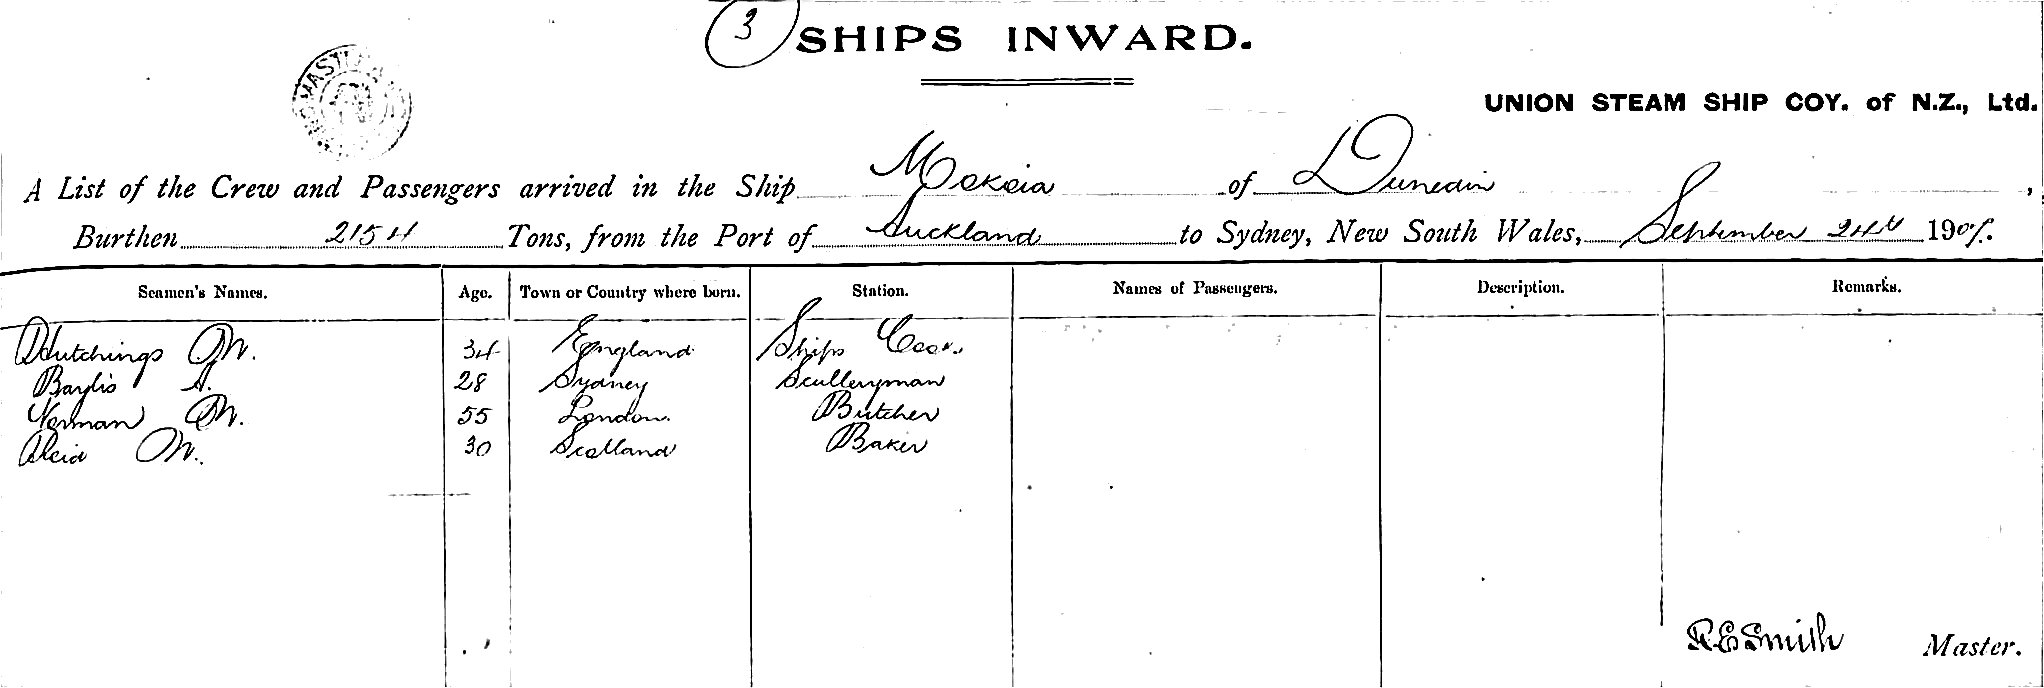 3
SHIPS INWARD.
UNION STEAM SHIP COY. of N.Z., Ltd.
A List of the Crew and Passengers arrived in the Ship Mokoia of Dunedin,
Burthen 2154 Tons, from the Port of Auckland to Sydney, New South Wales, September 24th 190
Seamen's Names. Age. Town or Country where born. Station. Names of Passengers. Description. Remarks.
Hutchings M. 34 England Ships Cook.
Baylis A. 28 Sydney Sculleryman
Norman M. 55 London. Butcher
Reid M. 30 Scotland Baker
R E Smith Master.